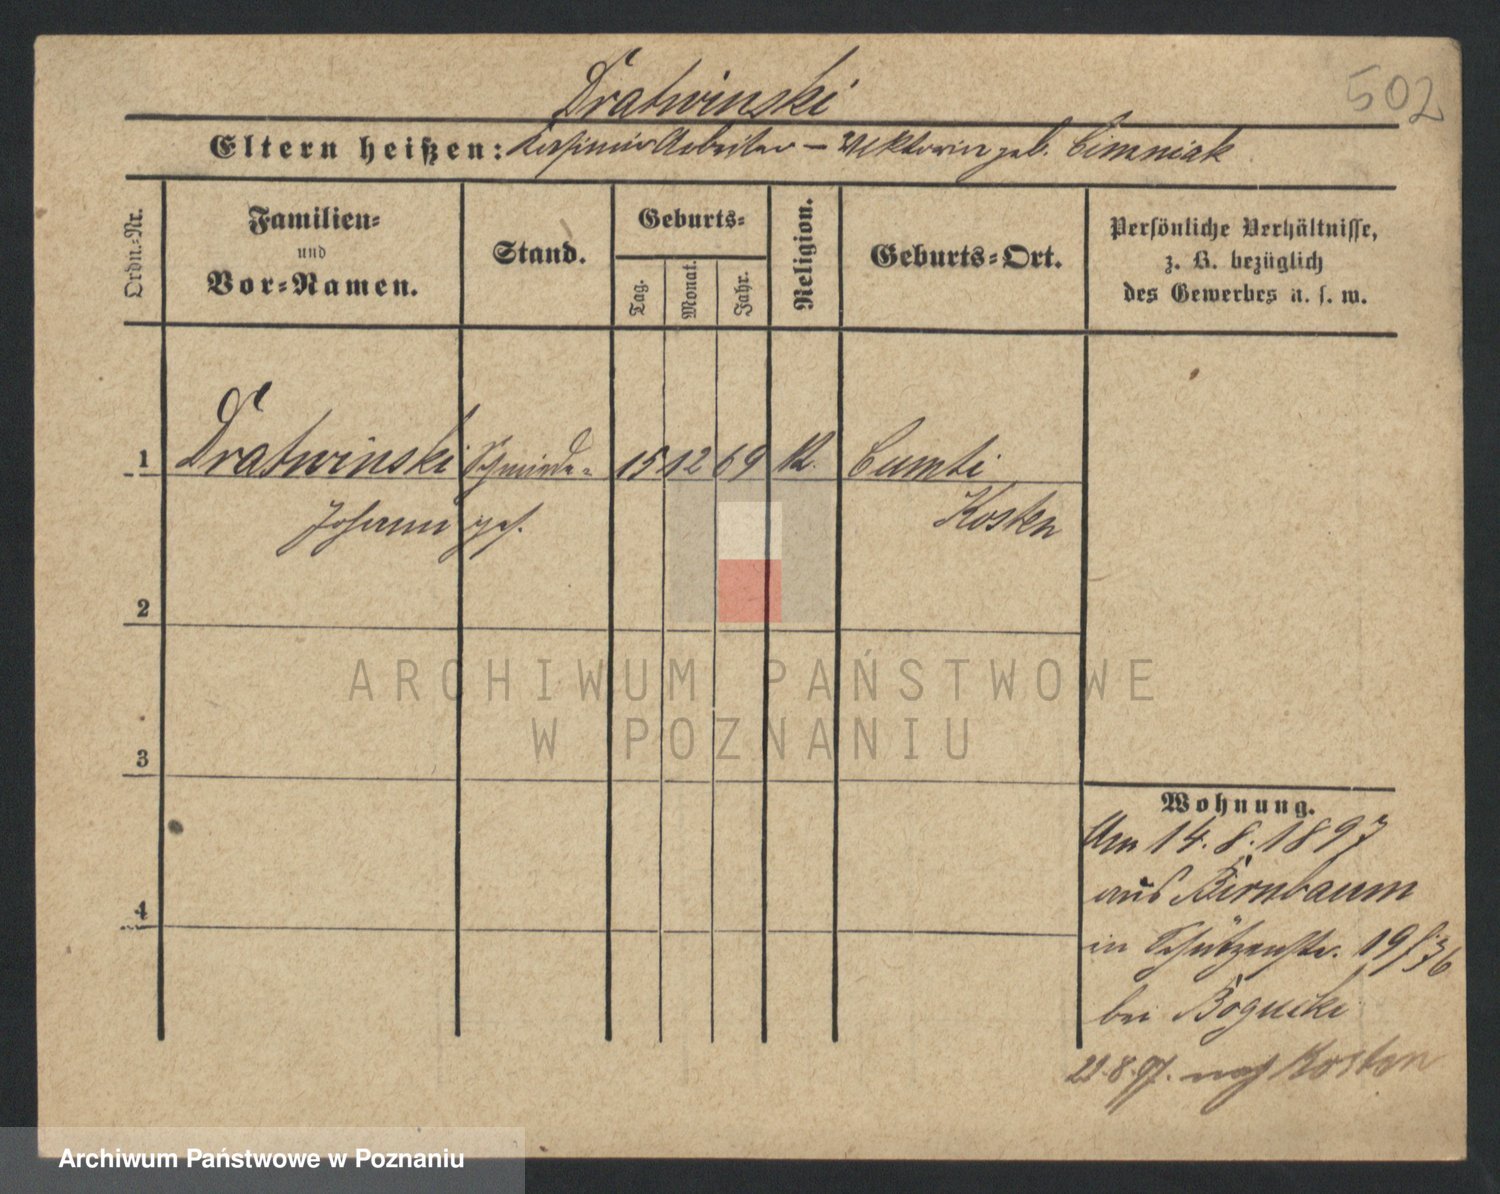 502
Dratwinski
Eltern heißen: Kasimir Arbeiter – Viktoria geb. Cimniak
Ordn.-Nr.
Familien-
und
Vor-Namen.
Stand.
Geburts-
Tag.
Monat.
Jahr.
Religion.
Geburts-Ort.
Persönliche Verhältnisse,
z. B. bezüglich
des Gewerbes u. s. w.
1 Dratwinski Schmiede- 15 12 69 K.
Johann ges. Kosten
2
3
4
ARCHIWUM PAŃSTWOWE
W POZNANIU
Wohnung.
Am 14.8.1897
aus Birnbaum
in Schützenstr. 19
bei Bogucki
22.8.97. nach Kosten
Archiwum Państwowe w Poznaniu